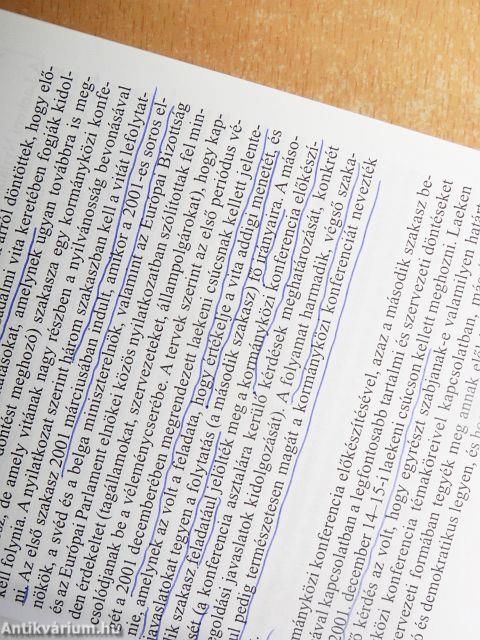 ról döntöttek, hogy elő-
vita keretében fogják kidol-
amelynek ugyan továbbra is meg-
döntést meghozó) szakasza egy kormányközi konfe-
de amely vitának nagy részben a nyilvánosság bevonásával
kell folynia. A nyilatkozat szerint három szakaszban kell a vitát lefolytat-
Az első szakasz 2001 márciusában indult, amikor a 2001-es soros el-
nökök, a svéd és a belga miniszterelnök, valamint az Európai Bizottság
és az Európai Parlament elnökei közös nyilatkozatban szólítottak fel min-
den érdekeltet (tagállamokat, szervezeteket, állampolgárokat), hogy kap-
csolódjanak be a véleménycserébe. A tervek szerint az első periódus vé-
gét a 2001 decemberében megrendezett laekeni csúcsnak kellett jelente-
nie, amelynek az volt a feladata, hogy értékelje a vita addigi menetét, és
javaslatokat tegyen a folytatás (a második szakasz) fő irányaira. A máso-
dik szakasz feladatául jelölték meg a kormányközi konferencia előkészí-
tését (a konferencia asztalára kerülő kérdések meghatározását, konkrét
megoldási javaslatok kidolgozását). A folyamat harmadik, végső szaka-
szául pedig természetesen magát a kormányközi konferenciát nevezték
kormányközi konferencia előkészítésével, azaz a második szakasz be-
val kapcsolatban a legfontosabb tartalmi és szervezeti döntéseket
2001. december 14–15-i laekeni csúcson kellett meghozni. Laeken
kérdés az volt, hogy egyrészt szabjanak-e valamilyen határt
közi konferencia témaköreivel kapcsolatban, más
szervezeti formában tegyék meg annak
és demokratikus legyen, és
Antikvárium.hu